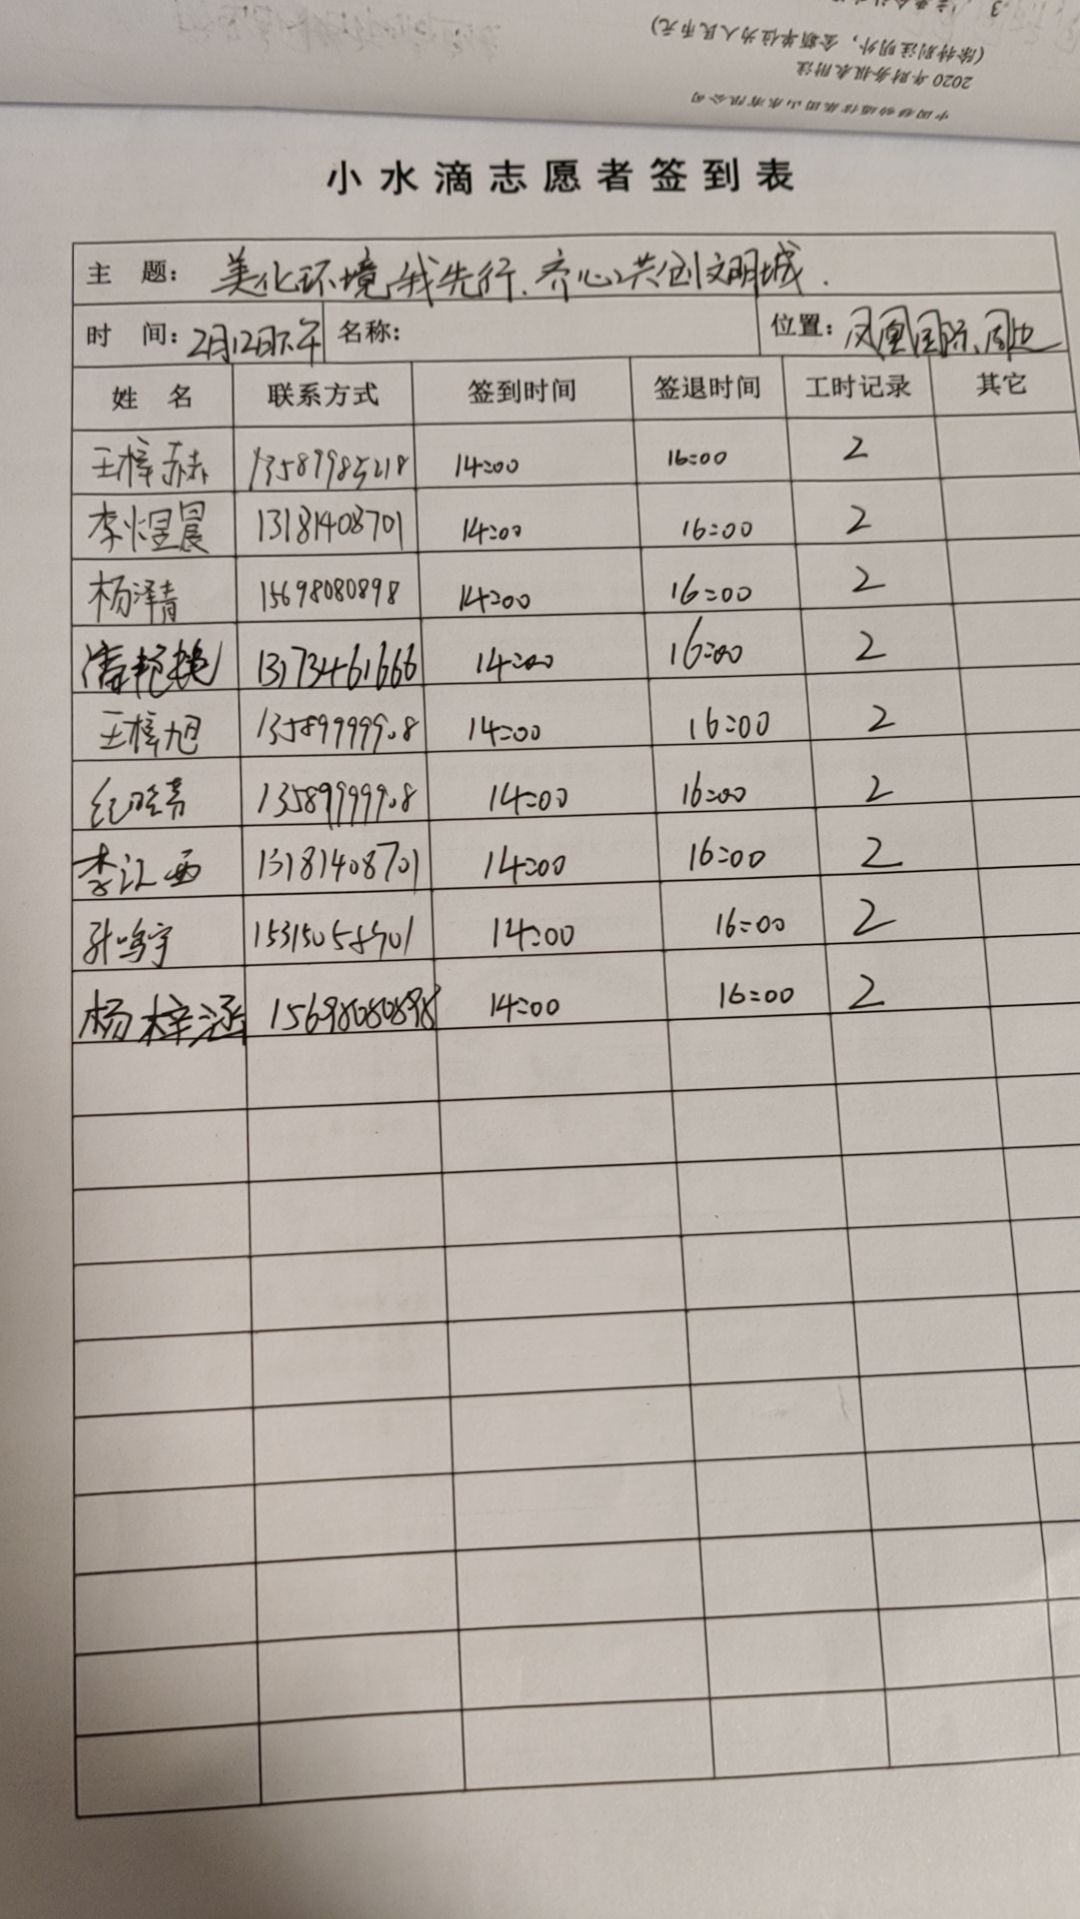 中国移动通信集团山东有限公司
2020 年财务报表附注
(除特别注明外，金额单位为人民币元)
3
小水滴志愿者签到表
主 题： 美化环境我先行.齐心共创文明城.
时 间：2月12日下午 名称： 位置：凤凰国际周边
姓 名 联系方式 签到时间 签退时间 工时记录 其它
王梓赫 13589985218 14:00 16:00 2
李煜晨 13181408701 14:00 16:00 2
杨泽青 15698080898 14:00 16:00 2
13173461666 14:00 16:00 2
王梓旭 13589999908 14:00 16:00 2
纪晓青 13589999908 14:00 16:00 2
李江西 13181408701 14:00 16:00 2
张鸣宇 14:00 16:00 2
杨梓涵 15698080898 14:00 16:00 2